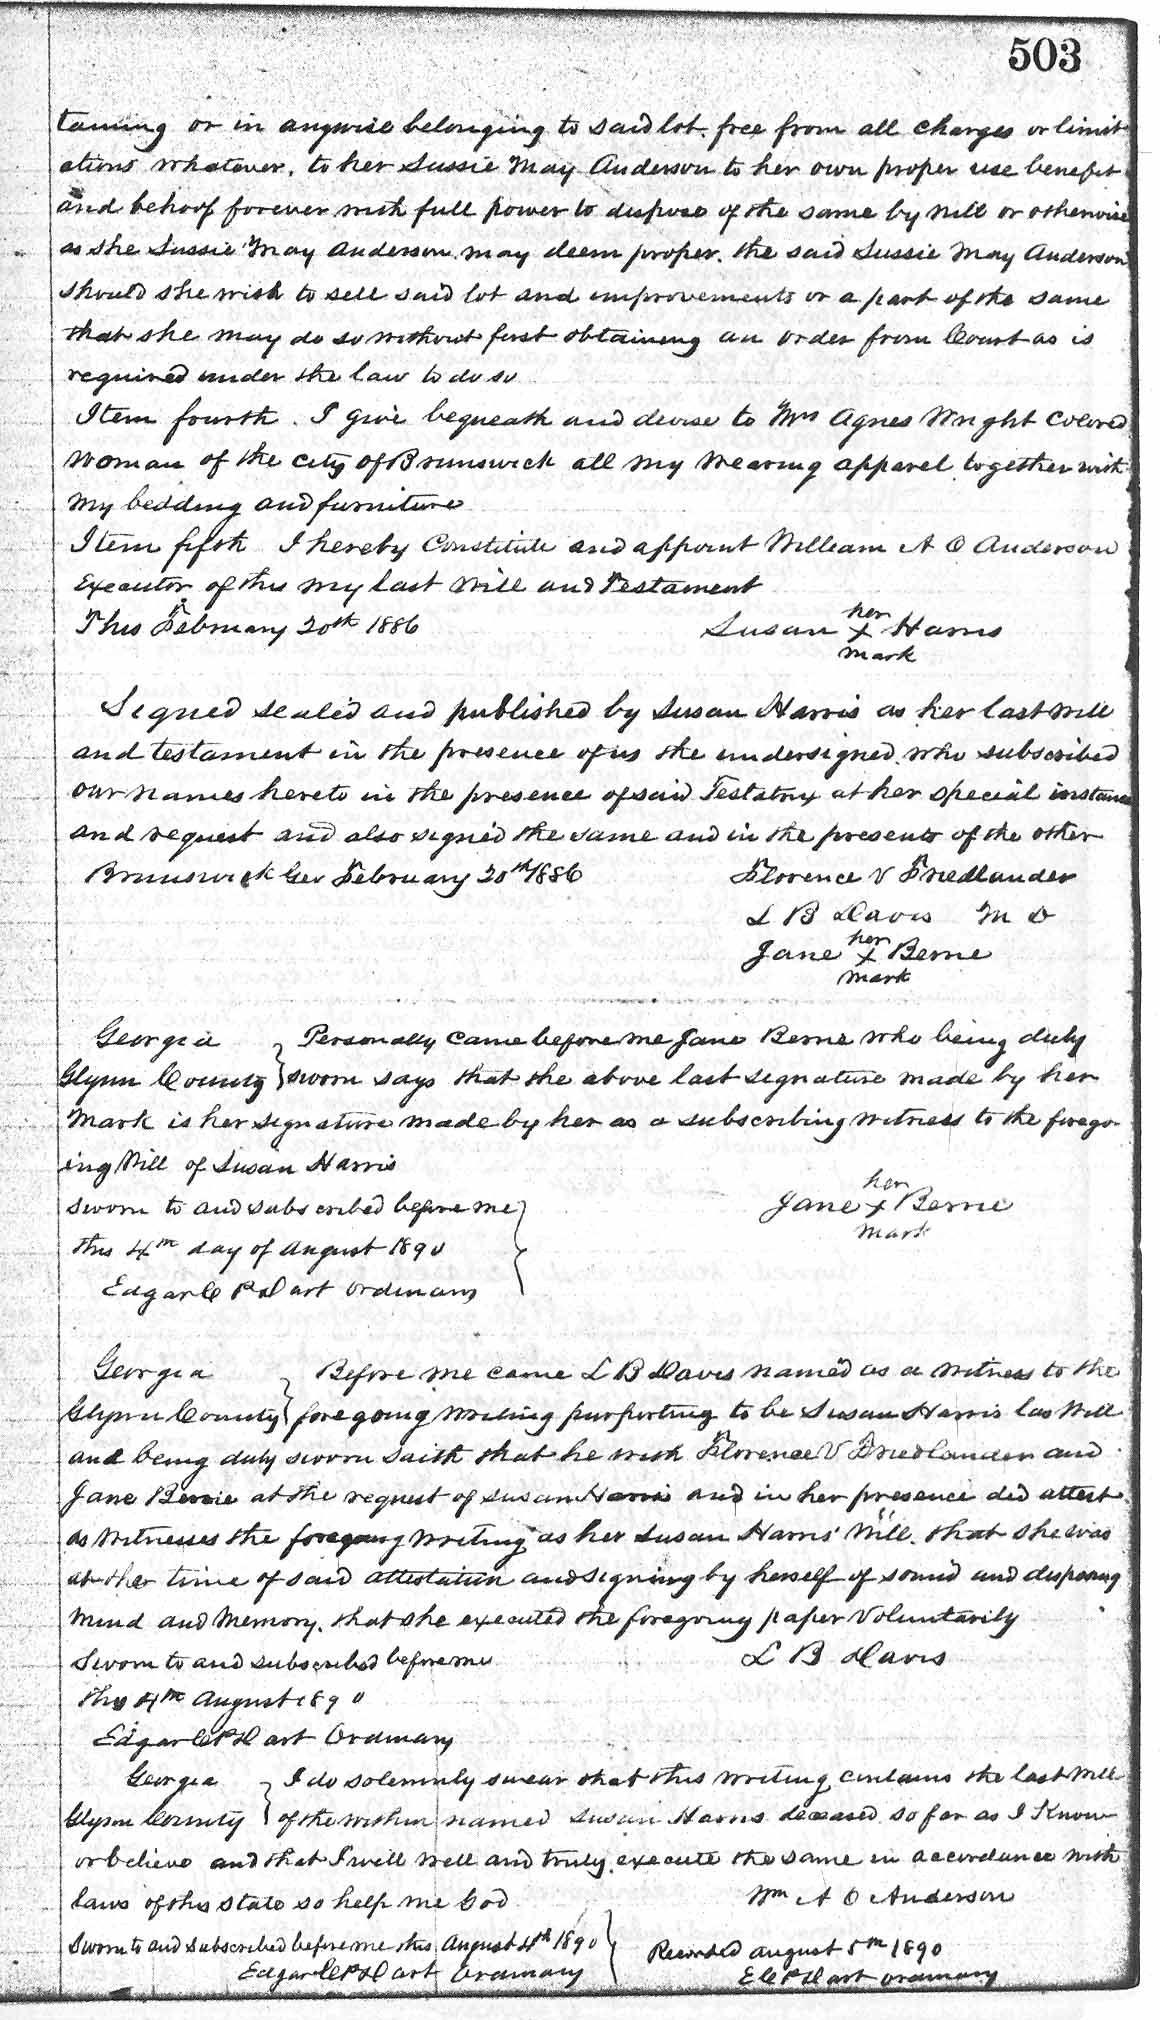 503
taining or in anywise belonging to said lot. free from all charges or limit
ations whatever, to her Sussie May Anderson to her own proper use benefit
and behoof forever with full power to dispose of the same by will or otherwise
as she Sussie May Anderson may deem proper. the said Sussie May Anderson
should she wish to sell said lot and improvements or a part of the same
that she may do so without first obtaining an order from Court as is
required under the law to do so
Item fourth. I give bequeath and devise to Mrs Agnes Wright Colored
woman of the city of Brunswick all my wearing apparel together with
my bedding and furniture
Item fifth I hereby Constitute and appoint William A O Anderson
Executor of this my last will and Testament
This February 20th 1886 Susan her x mark Harris
Signed sealed and published by Susan Harris as her last will
and testament in the presence of us the undersigned who subscribed
our names hereto in the presence of said Testatrix at her special instance
and request and also signed the same and in the presents of the other
Brunswick Geo February 20th 1886 Florence V Friedlander
L B Davis M D
Jane her x mark Berrie
Georgia } Personally came before me Jane Berrie who being duly
Glynn County } sworn says that the above last signature made by her
mark is her signature made by her as a subscribing witness to the forego-
ing Will of Susan Harris
Sworn to and subscribed before me } Jane her x mark Berrie
this 4th day of August 1890
Edgar C P Dart Ordinary
Georgia } Before me came L B Davis named as a witness to the
Glynn County } foregoing writing purporting to be Susan Harris las Will
and being duly sworn saith that he with Florence V Friedlander and
Jane Berrie at the request of Susan Harris and in her presence did attest
as witnesses the foregoing writing as her Susan Harris' Will. that she was
at the time of said attestation and signing by herself of sound and disposing
mind and memory. that she executed the foregoing paper voluntarily
Sworn to and subscribed before me L B Davis
this 4th August 1890
Edgar C P Dart Ordinary
Georgia } I do solemnly swear that this writing contains the last Will
Glynn County } of the within named Susan Harris deceased so far as I Know
or believe and that I will well and truly execute the same in accordance with
laws of this state so help me God Wm A O Anderson
Sworn to and subscribed before me this August 4th 1890 } Recorded August 5th 1890
Edgar C P Dart Ordinary E C P Dart ordinary